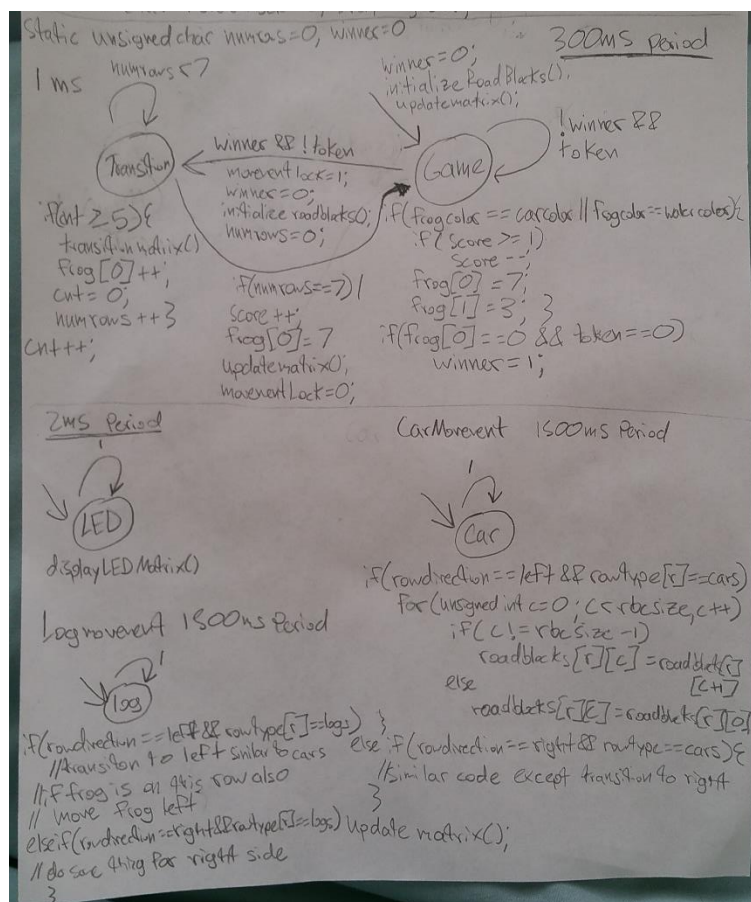 Static unsigned char numrows=0, winner=0
300ms Period
1ms
numrows<7
winner=0;
initializeRoadBlocks();
updatematrix();
Transition
winner && !token
movement lock=1;
winner=0;
initialize roadblocks();
numrows=0;
Game
!winner &&
token
if(cnt ≥5){
transitionmatrix()
frog[0]++;
cnt=0;
numrows++}
cnt++;
if(numrows==7)/
score++;
frog[0]=7
updatematrix();
movementLock=0;
if(frogcolor==carcolor || frogcolor==watercolor){
if(score>=1)
score--;
frog[0]=7;
frog[1]=3; }
if(frog[0]==0 && token==0)
winner=1;
2ms Period
1
LED
displayLEDMatrix()
CarMovement 1500ms Period
1
Car
if(rowdirection==left && rowtype[r]==cars)
for(unsigned int c=0; c<rbcsize, c++)
if(c!=rbcsize-1)
roadblocks[r][c]=roadblock[r]
[c+1]
else
roadblocks[r][c]=roadblocks[r][0]
}
else if(rowdirection==right && rowtype==cars){
//similar code except transition to right
}
update matrix();
Logmovement 1500ms Period
1
log
if(rowdirection==left && rowtype[r]==logs)
//transition to left similar to cars
//if frog is on this row also
// move frog left
elseif(rowdirection==right&&rowtype[r]==logs)
//do same thing for right side
}